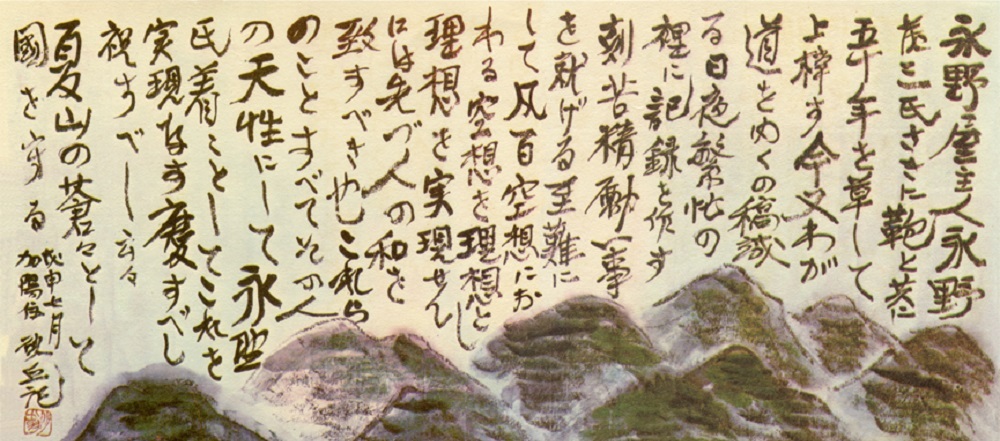 永野屋主人永野
茂三氏さきに鞄と共に
五十年を草して
上梓す今又わが
道をゆくの稿成
る日夜繁忙の
裡に記録を作す
刻苦精励事
を就げる至難に
して凡百空想にお
わる空想を理想と
理想を実現せん
には先づ人の和を
致すべきやこれら
のことすべてその人
の天性にして永野
氏着々としてこれを
実現なす慶すべし
祝すべし云々
夏山の蒼々としいて
國を守る
戊申七月